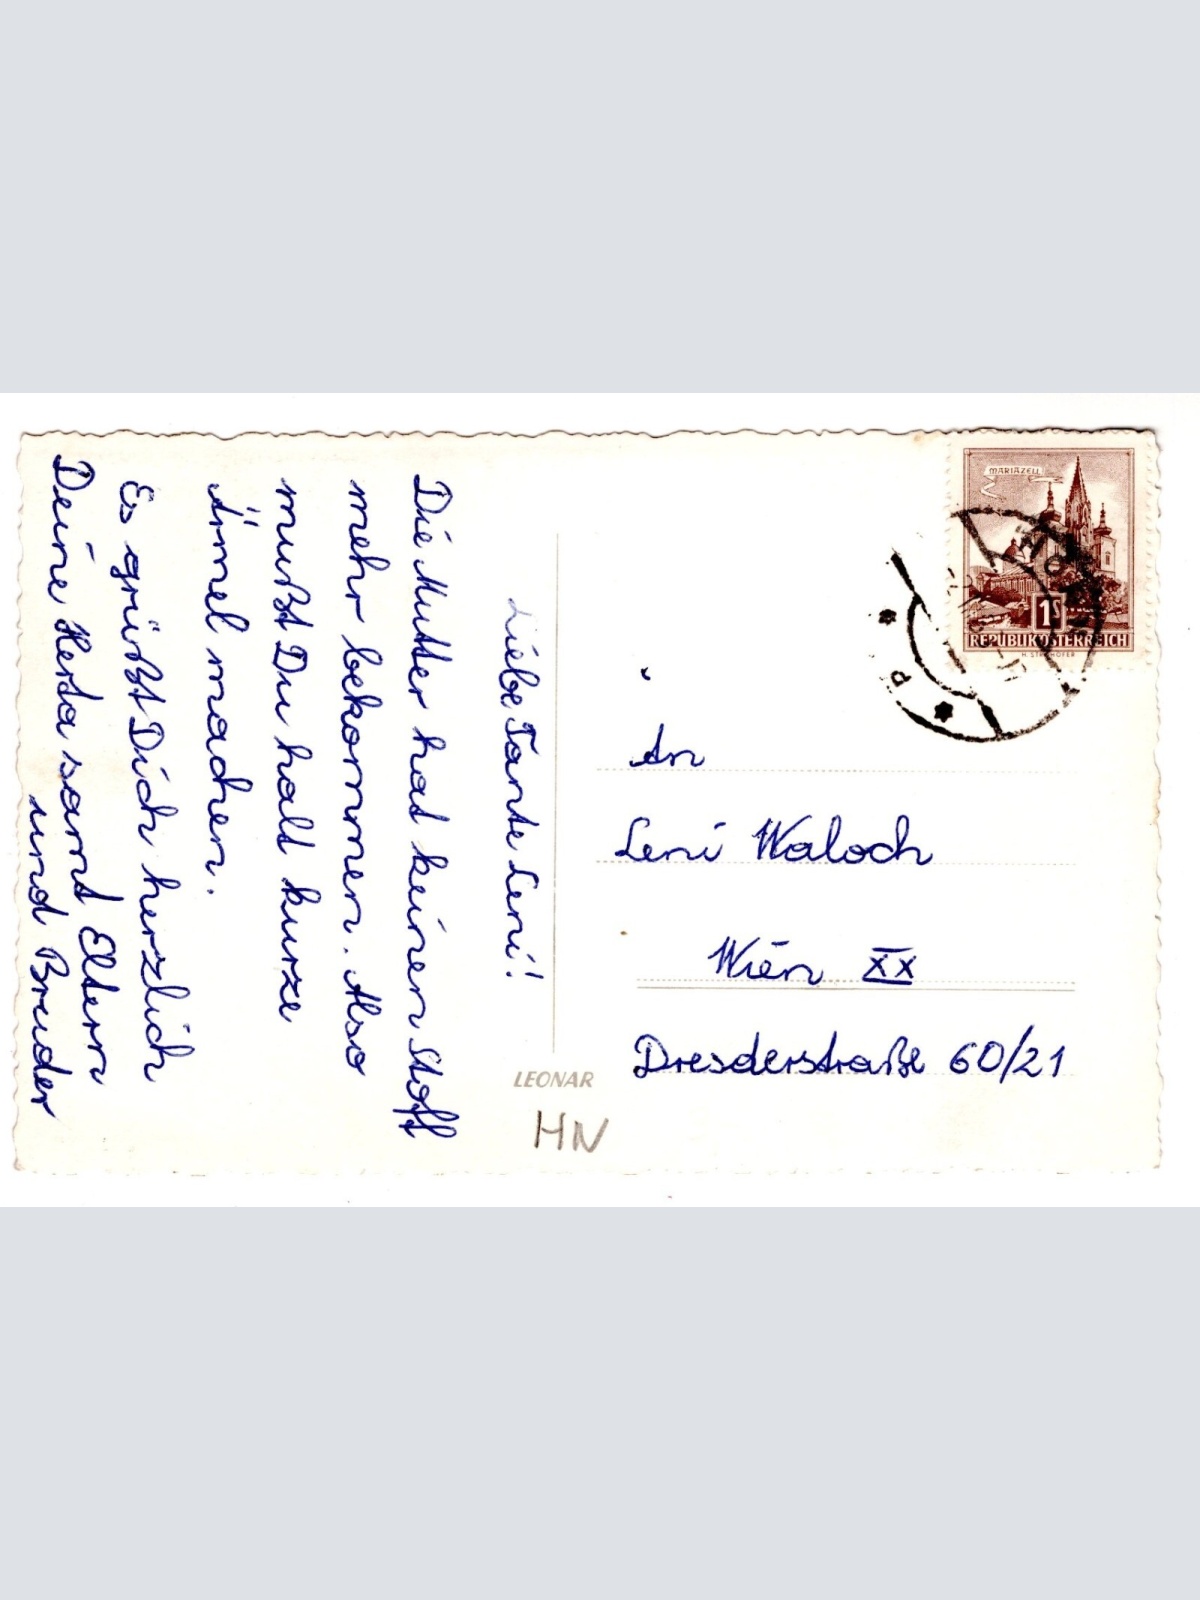 Liebe Tante Leni!
Die Mutter hat keinen Stoff
mehr bekommen. Also
mußt Du halt kurze
Ärmel machen.
Es grüßt Dich herzlich
Deine Herta samt Eltern
und Bruder
MARIAZELL
1S
REPUBLIK ÖSTERREICH
P
An
Leni Waloch
Wien XX
Dresderstraße 60/21
LEONAR
HN